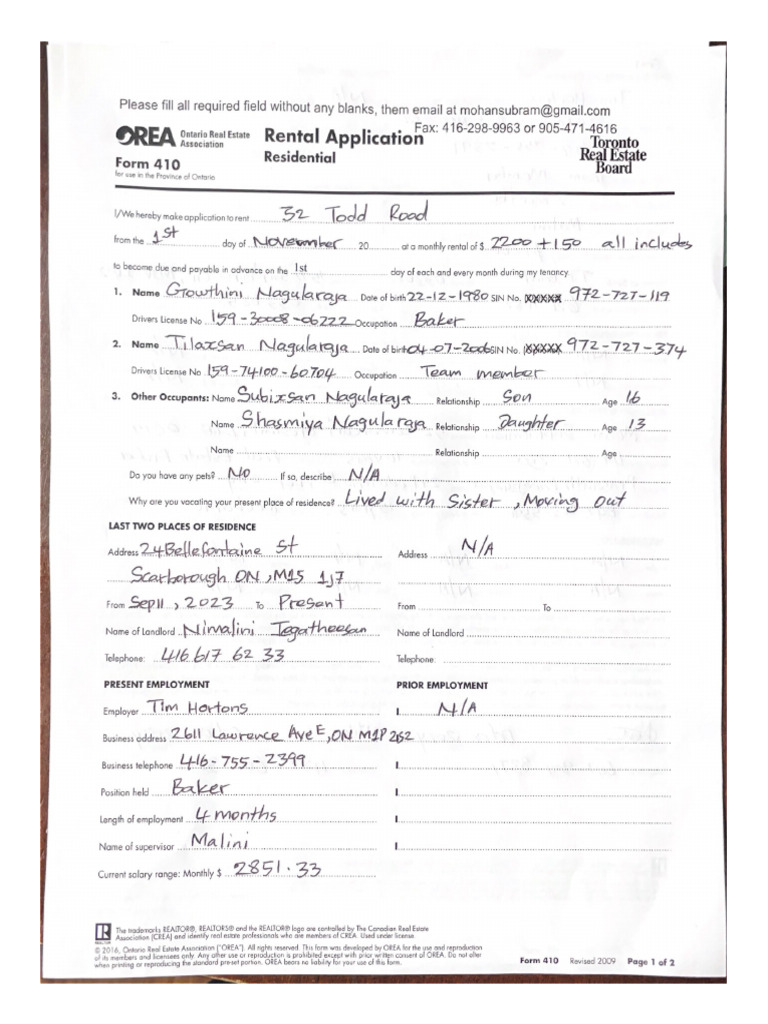 Please fill all required field without any blanks, them email at mohansubram@gmail.com
Fax: 416-298-9963 or 905-471-4616
OREA Ontario Real Estate Association
Rental Application
Residential
Toronto Real Estate Board
Form 410
for use in the Province of Ontario
I/We hereby make application to rent 32 Todd Road
from the 1st day of November 20 at a monthly rental of $ 2200 + 150 all includes
to become due and payable in advance on the 1st day of each and every month during my tenancy.
1. Name Growthini Nagularaja Date of birth 22-12-1980 SIN No. XXXXX 972-727-119
Drivers License No 159-30008-06222 Occupation Baker
2. Name Tilaxsan Nagularaja Date of birth 04-07-2006 SIN No. XXXXX 972-727-374
Drivers License No 159-74100-60704 Occupation Team member
3. Other Occupants: Name Subixsan Nagularaja Relationship Son Age 16
Name Shasmiya Nagularaja Relationship Daughter Age 13
Name Relationship Age
Do you have any pets? No If so, describe N/A
Why are you vacating your present place of residence? Lived with Sister, Moving out
LAST TWO PLACES OF RESIDENCE
Address 24 Bellefontaine St
Scarborough ON, M1S 1J7
From Sep 11, 2023 To Present
Name of Landlord Nimalini Jegatheesan
Telephone: 416 617 62 33
Address N/A
From To
Name of Landlord
Telephone:
PRESENT EMPLOYMENT
Employer Tim Hortons
Business address 2611 Lawrence Ave E, ON M1P 2S2
Business telephone 416-755-2399
Position held Baker
Length of employment 4 months
Name of supervisor Malini
Current salary range: Monthly $ 2851.33
PRIOR EMPLOYMENT
N/A
The trademarks REALTOR®, REALTORS® and the REALTOR® logo are controlled by The Canadian Real Estate
Association (CREA) and identify real estate professionals who are members of CREA. Used under license.
© 2016, Ontario Real Estate Association ("OREA"). All rights reserved. This form was developed by OREA for the use and reproduction
of its members and licensees only. Any other use or reproduction is prohibited except with prior written consent of OREA. Do not alter
when printing or reproducing the standard pre-set portion. OREA bears no liability for your use of this form.
Form 410 Revised 2009 Page 1 of 2